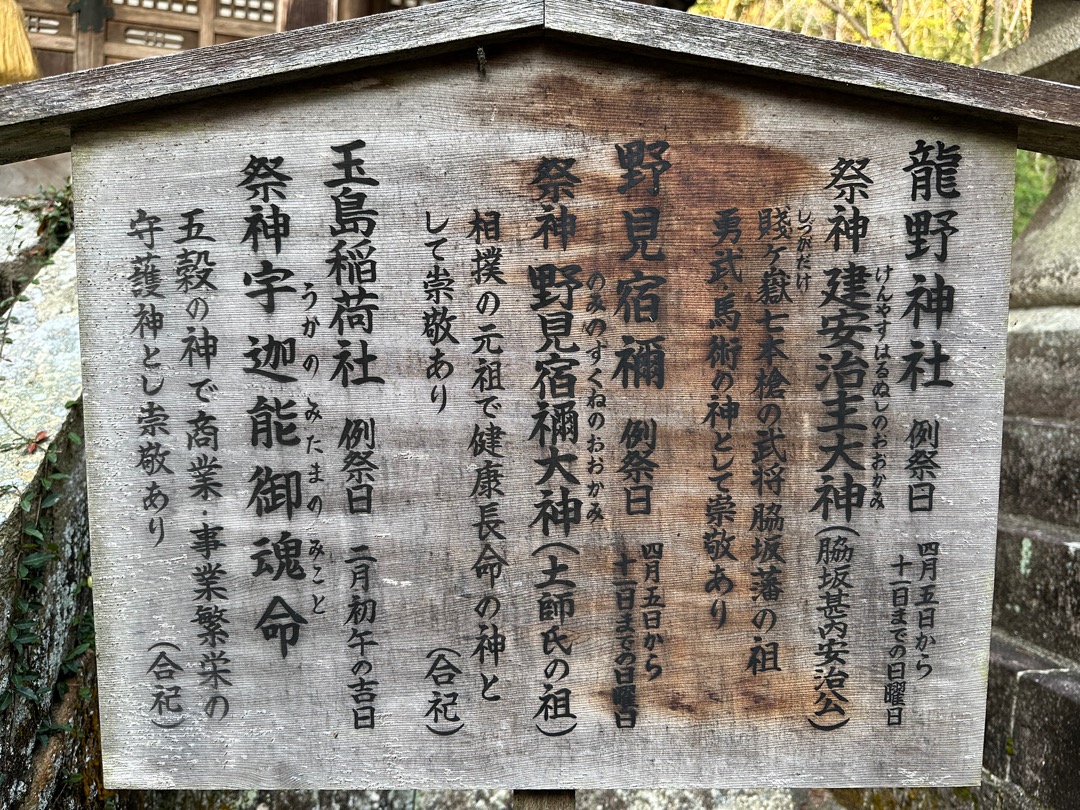 龍野神社 例祭日 四月五日から
十一日までの日曜日
けんやすはるぬしのおおかみ
祭神 建安治主大神(脇坂甚内安治公)
しづがだけ
賤ヶ嶽七本槍の武将 脇坂藩の祖
勇武・馬術の神として崇敬あり
野見宿禰 例祭日 四月五日から
十一日までの日曜日
のみのすくねのおおかみ
祭神 野見宿禰大神(土師氏の祖)
相撲の元祖で健康長命の神と
して崇敬あり (合祀)
玉島稲荷社 例祭日 二月初午の吉日
うかの みたまの みこと
祭神 宇迦能御魂命
五穀の神で商業・事業繁栄の
守護神とし崇敬あり (合祀)